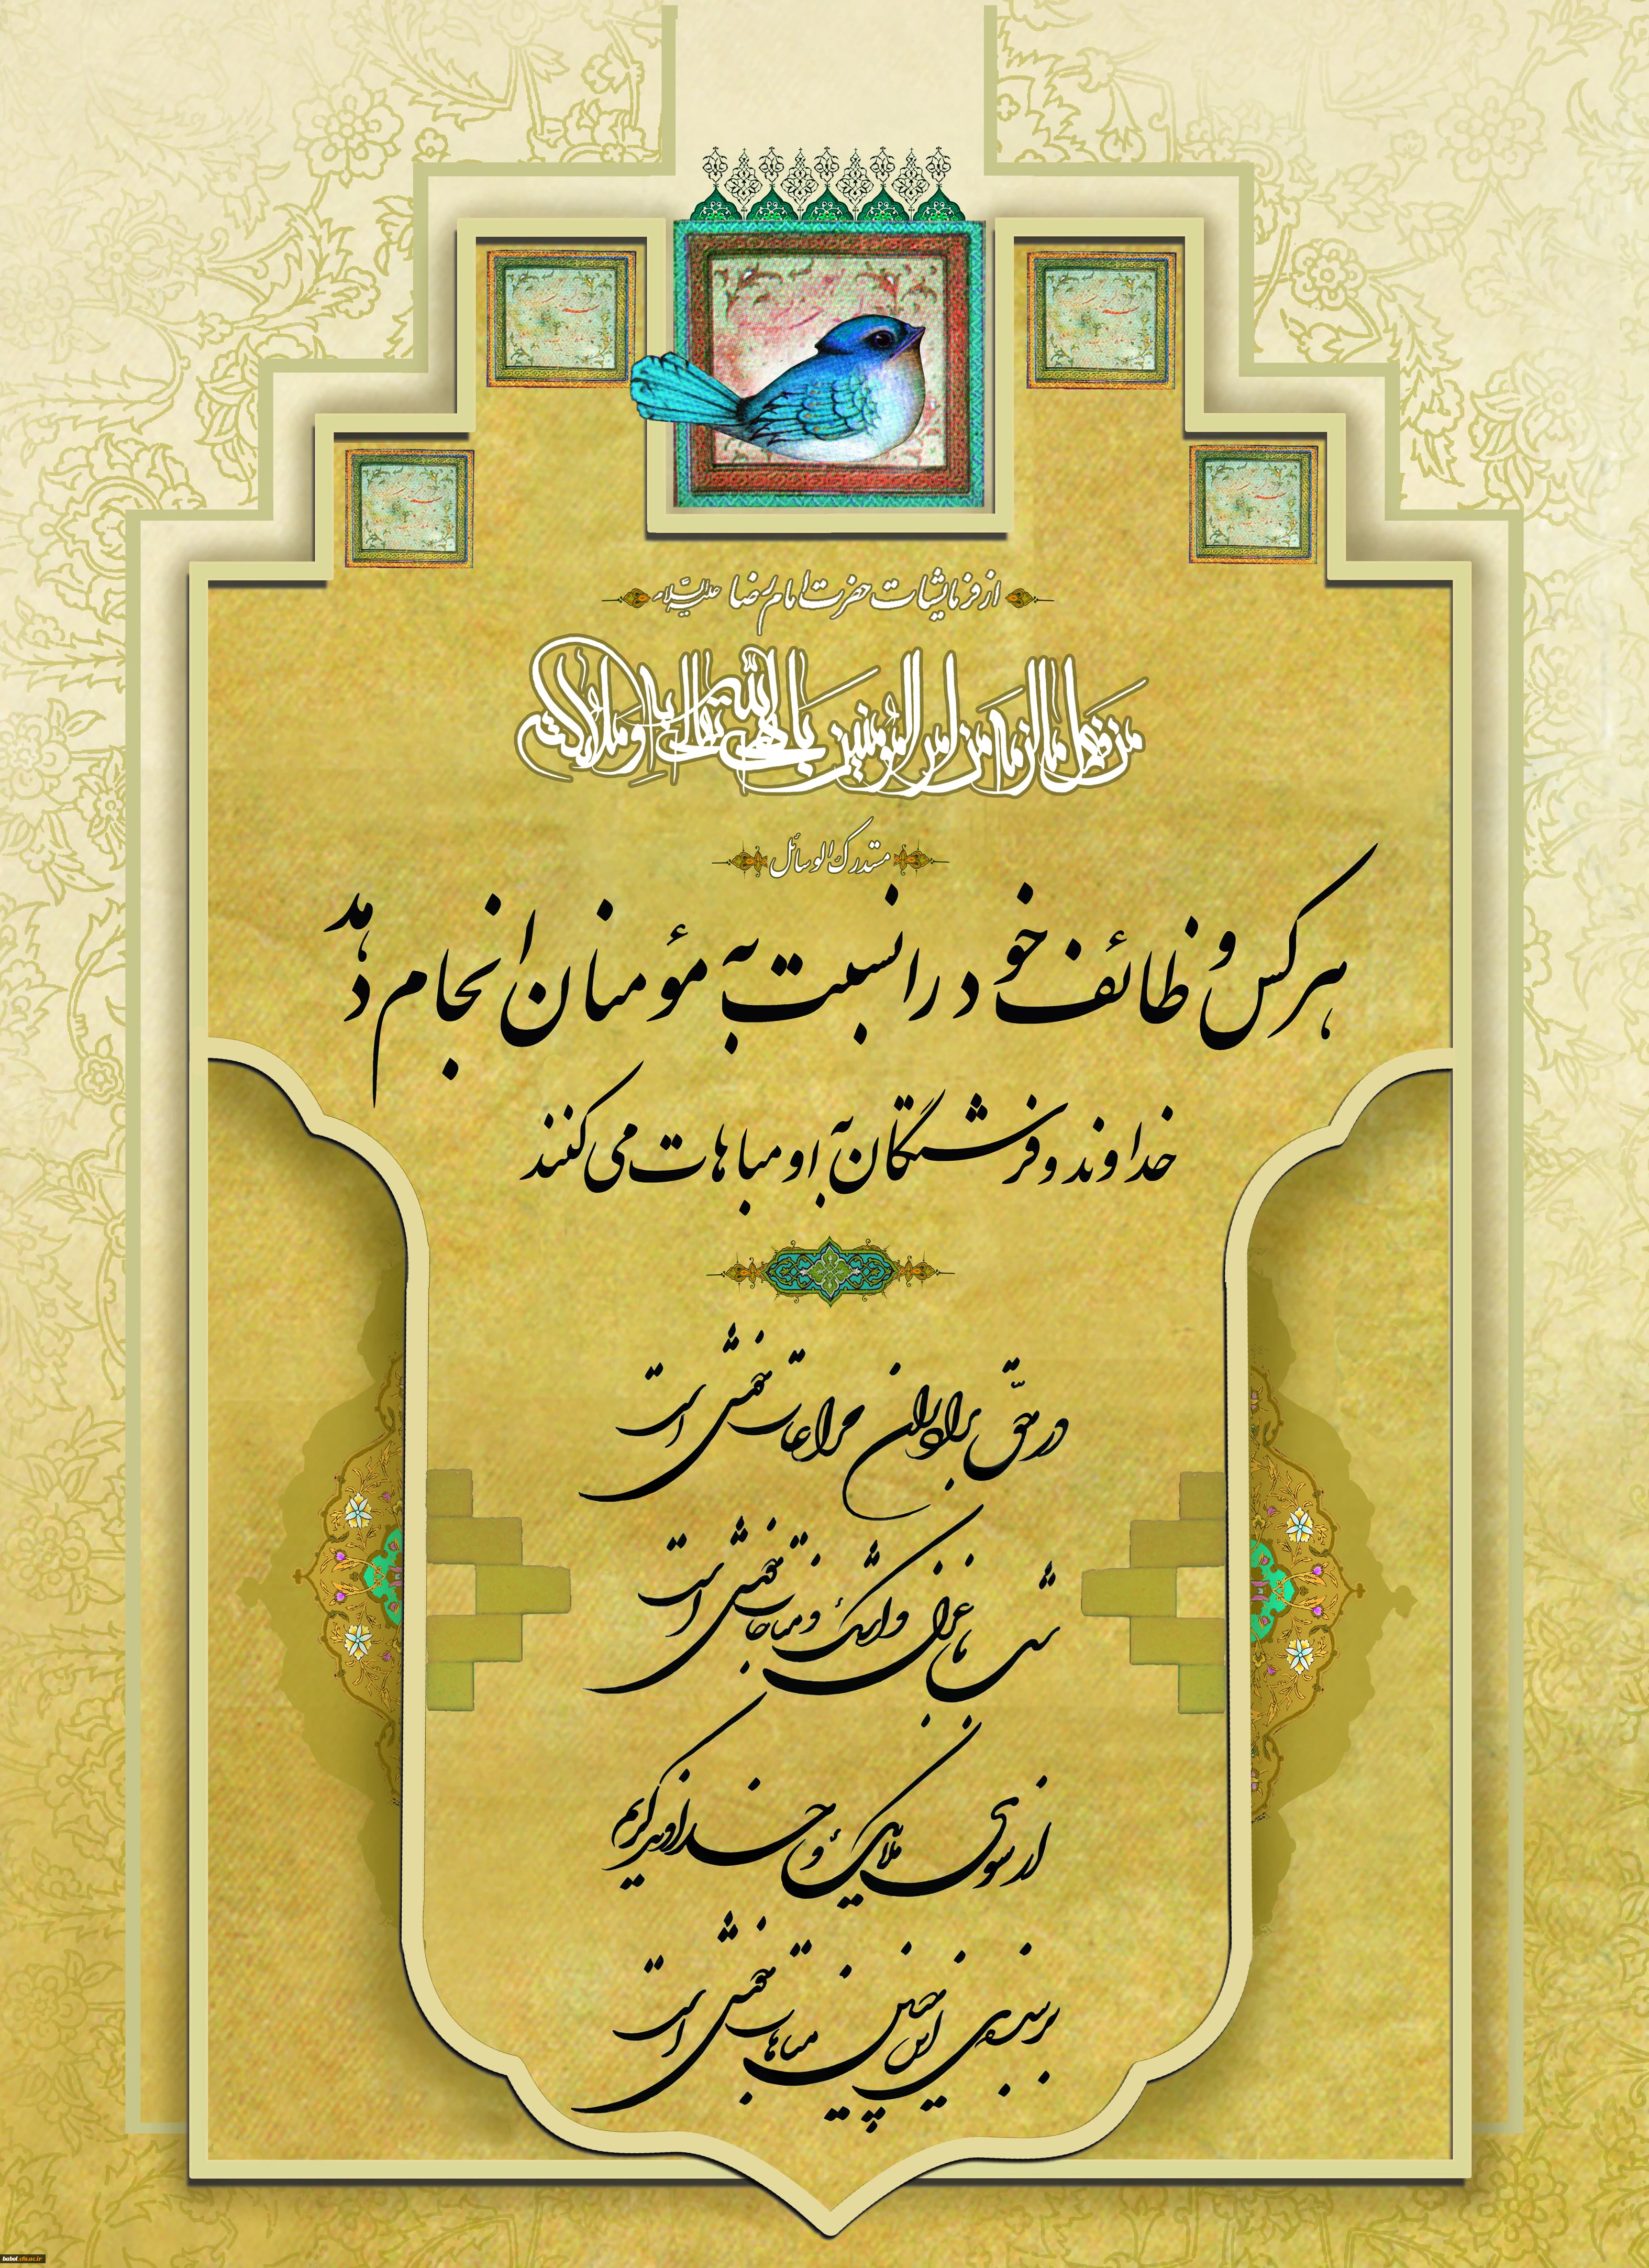 از فرمایشات حضرت امام رضا علیه السلام
من فعل ما لزمه من امر المؤمنین باهی الله تعالی به و ملائکته
مستدرک الوسائل
هر کس وظائف خود را نسبت به مؤمنان انجام دهد
خداوند و فرشتگان به او مباهات می کنند
در حقّ برادران مراعات خوش است
شب با غزل و اشک و مناجات خوش است
از سوی ملائک و خداوند کریم
بر بنده ی این چنین مباهات خوش است
babol.cfu.ac.ir